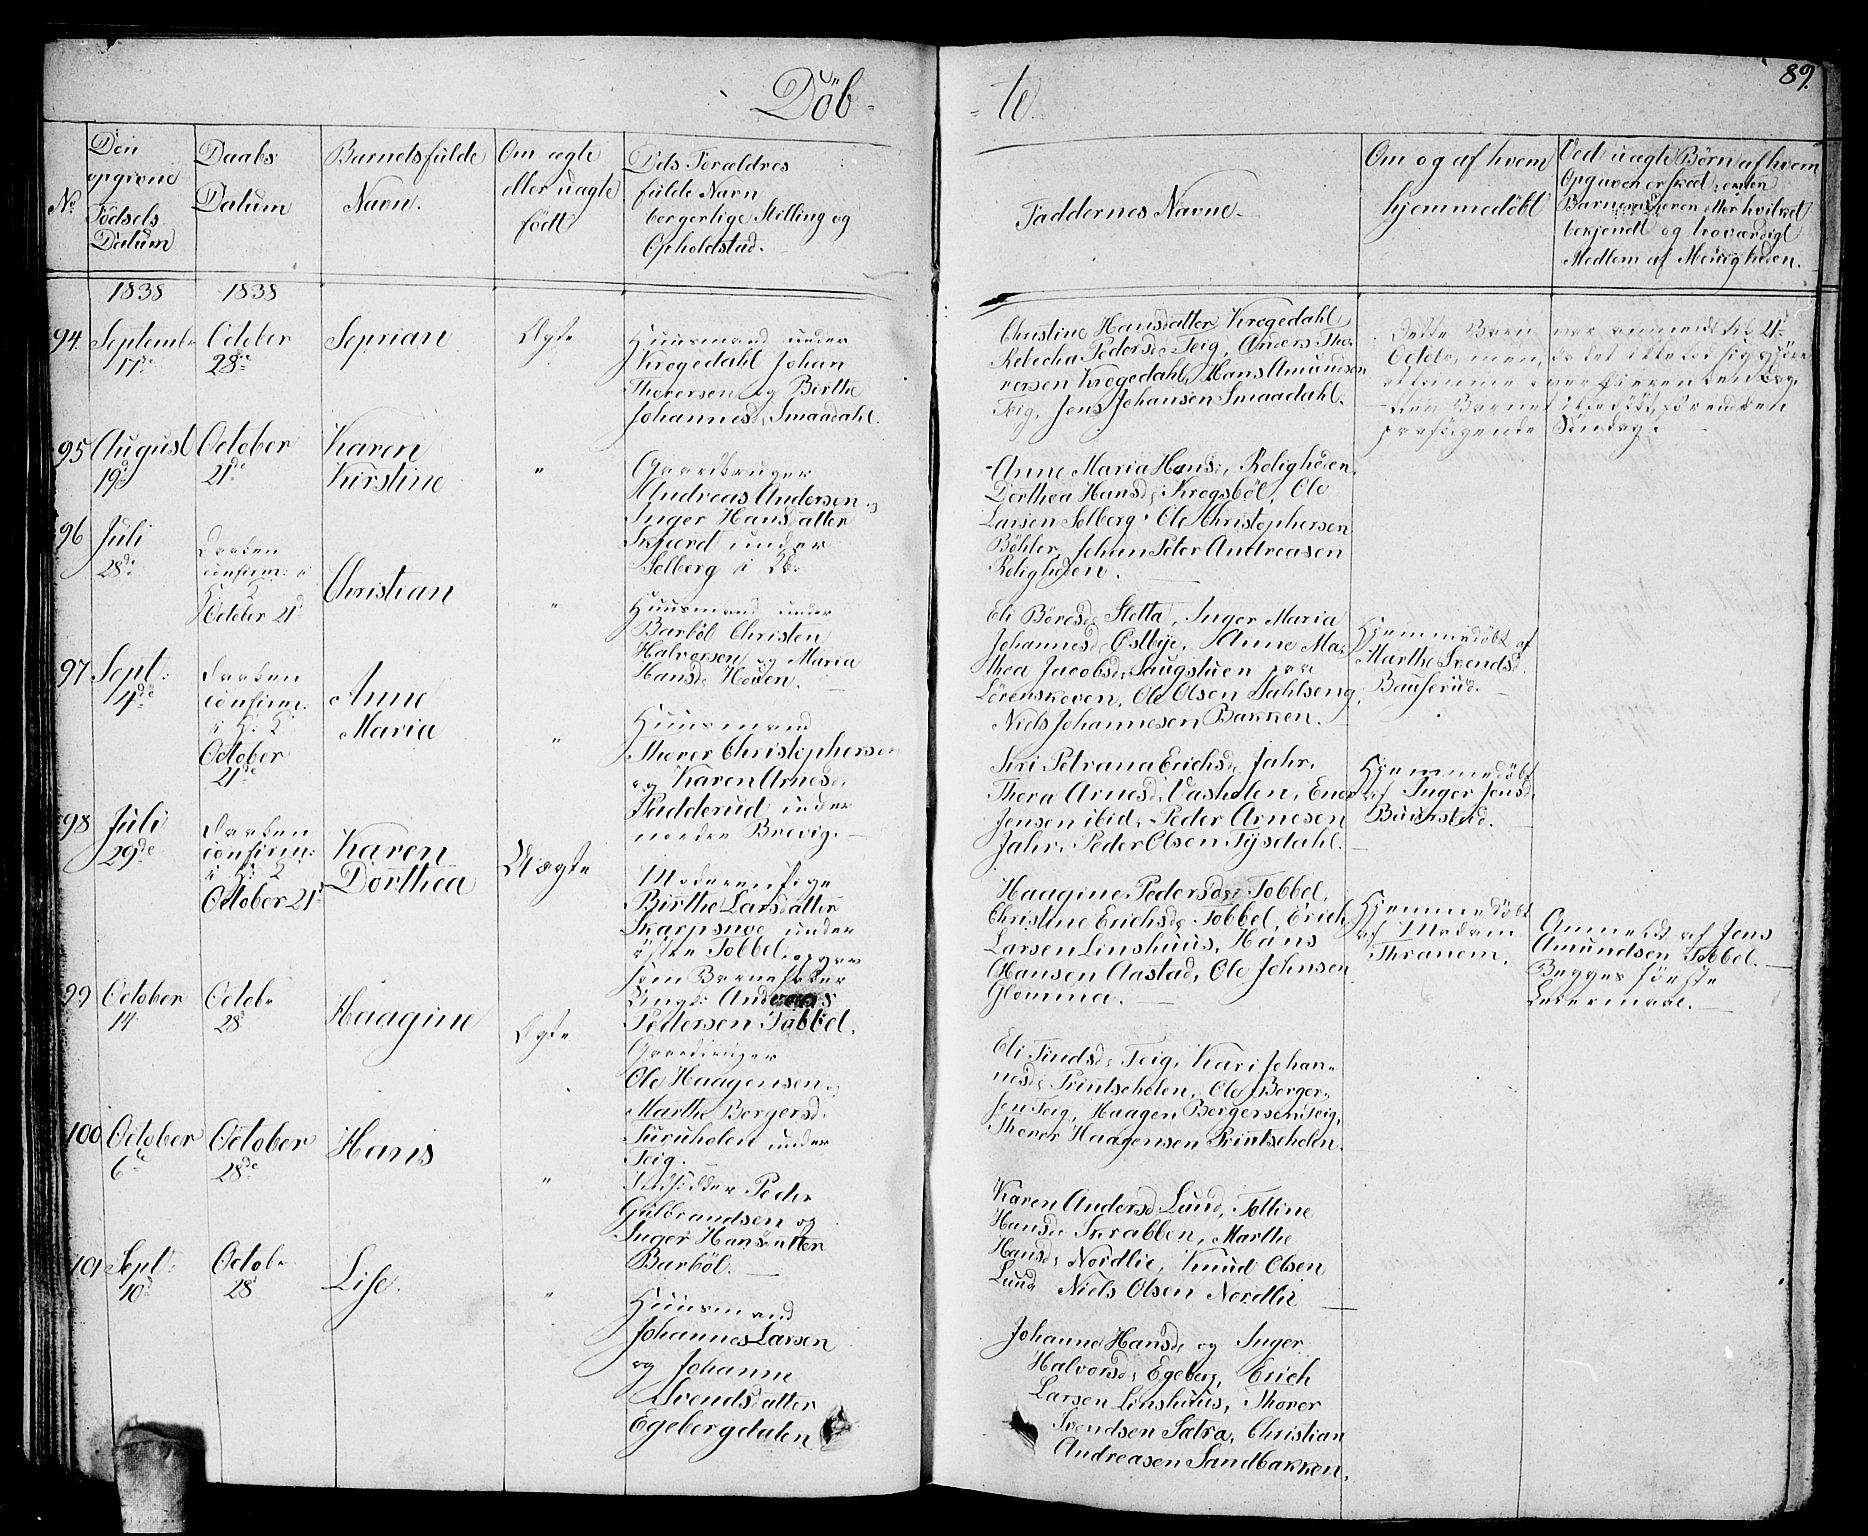 Döb-
-te.
89.
No
Den opgivne Fødsels Datum
Daabs Datum
Barnets fulde Navn.
Om ægte eller uægte født
Dets Forældres fulde Navn borgerlige Stilling og Opholdstad.
Faddernes Navne.
Om og af hvem hjemmedøbt
Ved uægte Børn af hvem Opgaven er skeet: enten Barnemoderen eller hvilket bekjendt og troværdigt Medlem af Menigheden.
1838
1838
94.
September 17de
October 28de
Seprian
Ægte
Huusmand under
Krogedahl Johan
Thoversen og Birthe
Johannesd. Smaadahl.
Christine Hansdatter Krogedahl
Rebecha Pedersd. Teig, Anders Tho-
versen Krogedahl, Hans Amundsen
Teig, Jens Johansen Smaadahl.
Dette Barn var anmeldt til 21de
October, men da det ikke lod sig gjøre
at komme over Øieren den Dag,
blev Barnet ikke døbt før end den
paafølgende Søndag.
95
August 19de
October 21de
Karen
Kirstine
"
Gaardbruger
Andreas Andersen og
Inger Hansdatter
under
Solberg i
Anne Maria Hansd. Roligheden,
Dorthea Hansd. Krogsböl, Ole
Larsen Solberg, Ole Christophersen
Böhler, Johan Peter Andreasen
Roligheden.
96
Juli 28de
Daaben
confirm: i
H: K:
October 21d
Christian
"
Huusmand under
Barböl Christen
Halvorsen og Maria
Hansd. Hoven.
Eli Böresd. Sletta, Inger Maria
Johannesd. Østbye, Anne Ma-
thea Jacobsd. Saugstuen paa
Lörenskoven, Ole Olsen Dahlseng,
Niels Johannesen Bakken.
Hjemmedöbt af
Marthe Svendsd.
Bauserud.
97
Sept: 4de
Daaben
confirm:
i H: K:
October
21de
Anne
Maria
"
Huusmand
Thorer Christophersen
og Karen Arnesd.
Padderud under
nordre Brevig.
Siri Petrana Erichsd. Jahr,
Thora Arnesd. Vasholen, Ener
Jensen ibid, Peder Arnesen
Jahr, Peder Olsen Tysdahl.
Hjemmedöbt
af Inger Jensd.
98
Juli 29de
Daaben
confirm:
i H: K:
October 21d
Karen
Dorthea
Uægte
Moderen Pige
Birthe Larsdatter
Skarpsnoe under
östre Tobbel, opgav
som Barnefader
Ungk: Andreas
Pedersen Tobbel.
Haagine Pedersd. Tobbel,
Christine Erichsd. Tobbel, Erich
Larsen Linshuus, Hans
Hansen Aastad, Ole Johnsen
Glomma.
Hjemmedöbt
af Madam
Thranem.
Anmeldt af Jens
Amundsen Tobbel.
Begges förste
Leiermaal.
99
October 14
Octobr 28
Haagine
Ægte
Gaardbruger
Ole Haagensen og
Marthe Borgersd.
Furuholen under
Teig.
Eli Findsd. Teig, Kari Johan-
nesd. Printseholen, Ole Borger-
sen Teig, Haagen Borgersen Teig,
Thorer Haagensen Printseholen.
100
October 6te
October 28de
Hans
"
Inds​idder Peder
Gulbrandsen og
Inger Hansdatter
Barböl.
Karen Andersd. Lund, Tolline
Hansd. Skrabben, Marthe
Hansd. Nordlie, Knud Olsen
Lund, Niels Olsen Nordlie
101
Sept: 10d
Octobr 28
Lise.
"
Huusmand
Johannes Larsen
og Johanne
Svendsdatter
Egebergdalen
Johanne Hansd. og Inger
Halvorsd. Egeberg, Erich
Larsen Linshuus, Thorer
Svendsen Sætra, Christian
Andreasen Sandbakken.